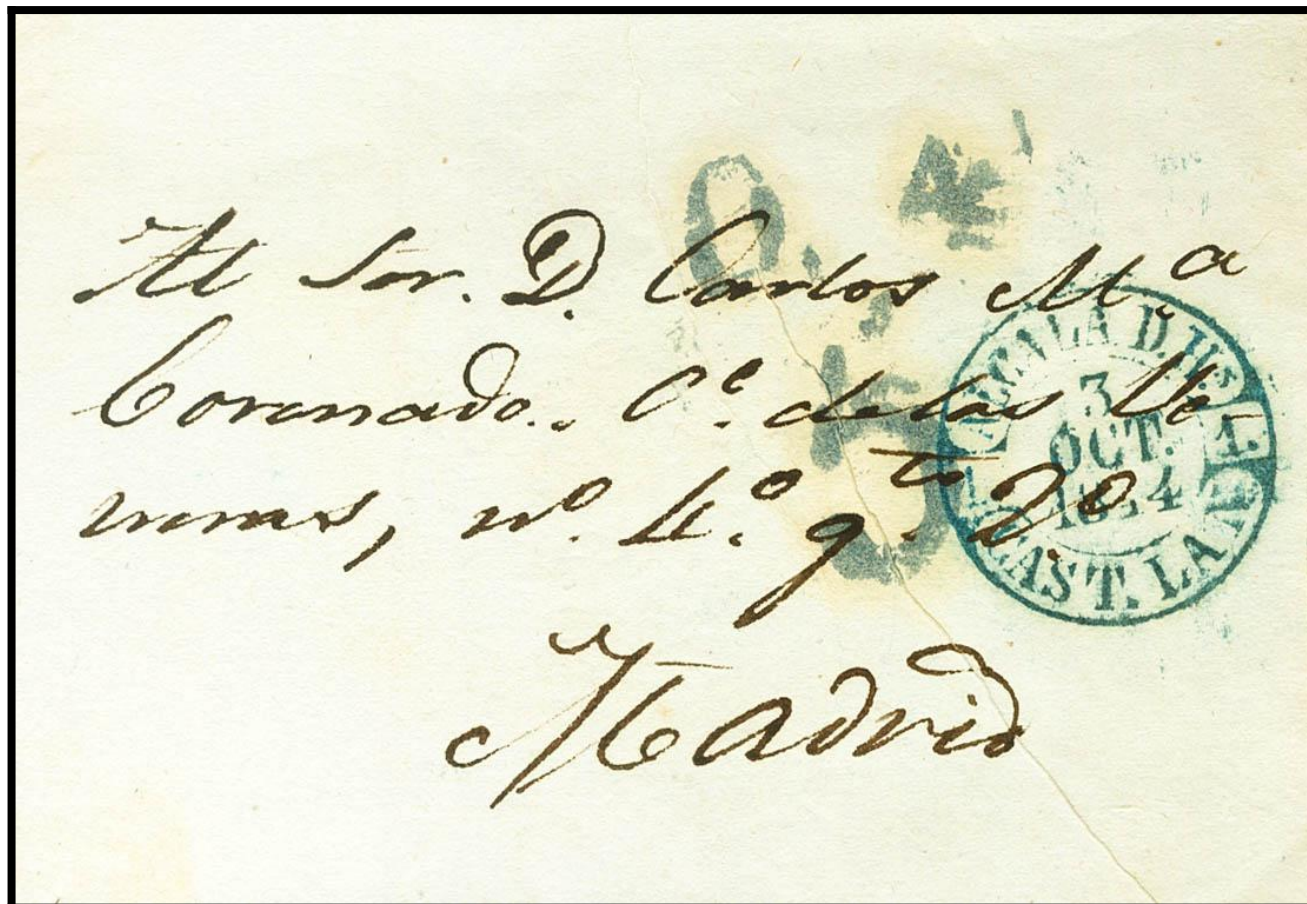 Al Sor. D. Carlos Mª
Coronado. Cᵉ. de las Ve-
neras, nº. 4.º qᵗᵒ. 2º.
Madrid
ALCALA D. Hˢ.
3
OCT.
CAST. LA N.
1.